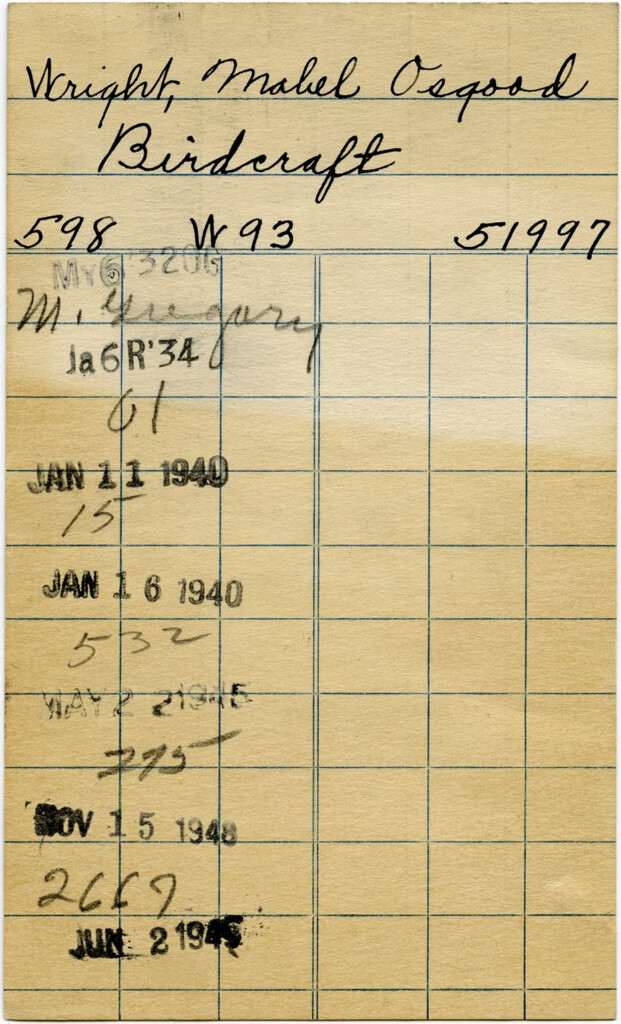 Wright, Mabel Osgood
Birdcraft
598 W93 51997
My 6 '32
M. Gregory
Ja 6 R '34
61
JAN 11 1940
15
JAN 16 1940
532
MAY 22 1945
275
NOV 15 1948
2667
JUN 2